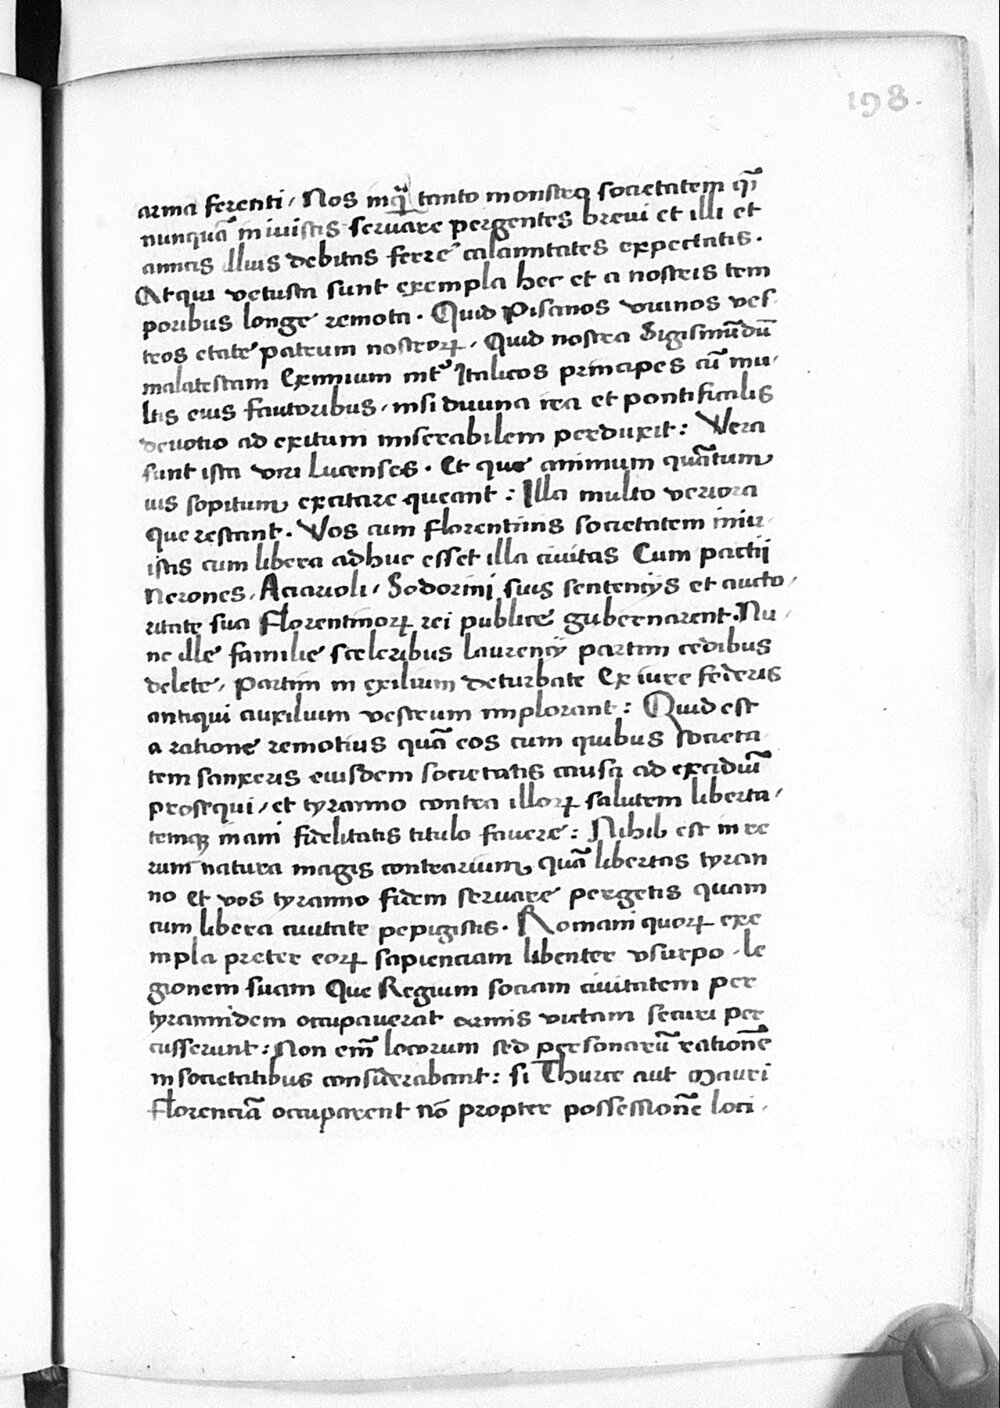 198.
arma ferenti / Nos inqᷓ tanto monstro societatem qᷓ
nunquā iniuistis seruare pergentes breui et illi et
amicis illius debitas ferre calamitates expectatis .
Atqui vetusta sunt exempla hec et a nostris tem
poribus longe remota . Quid Pisanos vicinos ves
tros etate patrum nostroꝝ . Quid nostra Sigismūdū
malatestam Eximium intᷣ Italicos principes cū mu /
ltis eius fautoribus / nisi diuina ira et pontificalis
deuotio ad exitum miserabilem perduxit : Vera
sunt ista viri Lucenses . Et que animum quātum
uis sopitum excitare queant : Illa multo veriora
que restant . Vos cum florentinis societatem iniu
istis cum libera adhuc esset illa ciuitas Cum pactij
Nerones . Aciaroli / Sodorini suis sentencijs et aucto /
ritate sua Florentinoꝝ rei publice gubernarent . Nu /
nc ille familie sceleribus laurencij partim cedibus
delete / Partim in exilium deturbate Ex iure federis
antiqui auxilium vestrum implorant : Quid est
a ratione remotius quā eos cum quibus societa
tem sanxeris eiusdem societatis causa ad excidiū
prosequi / et tyranno contra illoꝝ salutem liberta /
temqꝫ inani fidelitatis titulo fauere : Nihil est in re
rum natura magis contrarium , quā libertas tyran
no et vos tyranno fidem seruare pergetis quam
cum libera ciuitate pepigistis . Romani quoꝝ exe
mpla preter eoꝝ sapienciam libenter vsurpo . le
gionem suam Que Regium sociam ciuitatem per
tyrannidem occupauerat armis victam securi per
cusserunt : Non em̄ locorum sed personarū rationē
in societatibus considerabant : si Thurce aut Mauri
Florenciā occuparent nō propter possessionē loci .